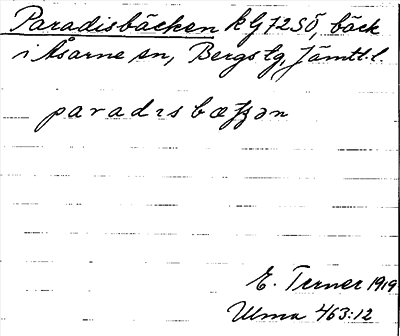 Paradisbäcken kG72SÖ, bäck
i Åsarne sn, Bergs tg, Jämtl. l.
paradısbæƫʒən
E. Terner 1919
Ulma 463:12